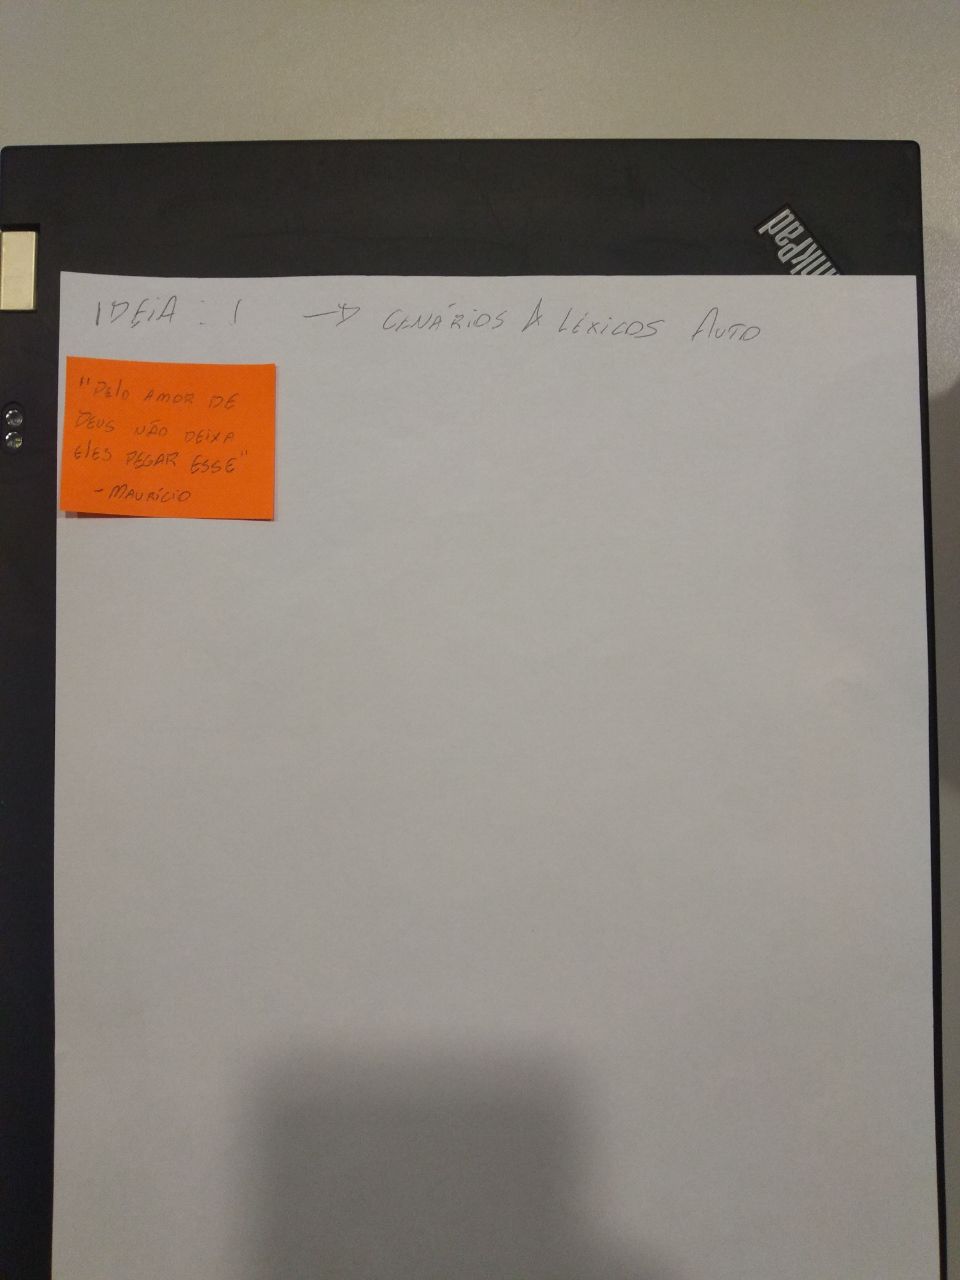 ThinkPad
IDEIA : 1 → CENÁRIOS & LÉXICOS AUTO
"PELO AMOR DE
DEUS NÃO DEIXA
ELES PEGAR ESSE"
- MAURÍCIO